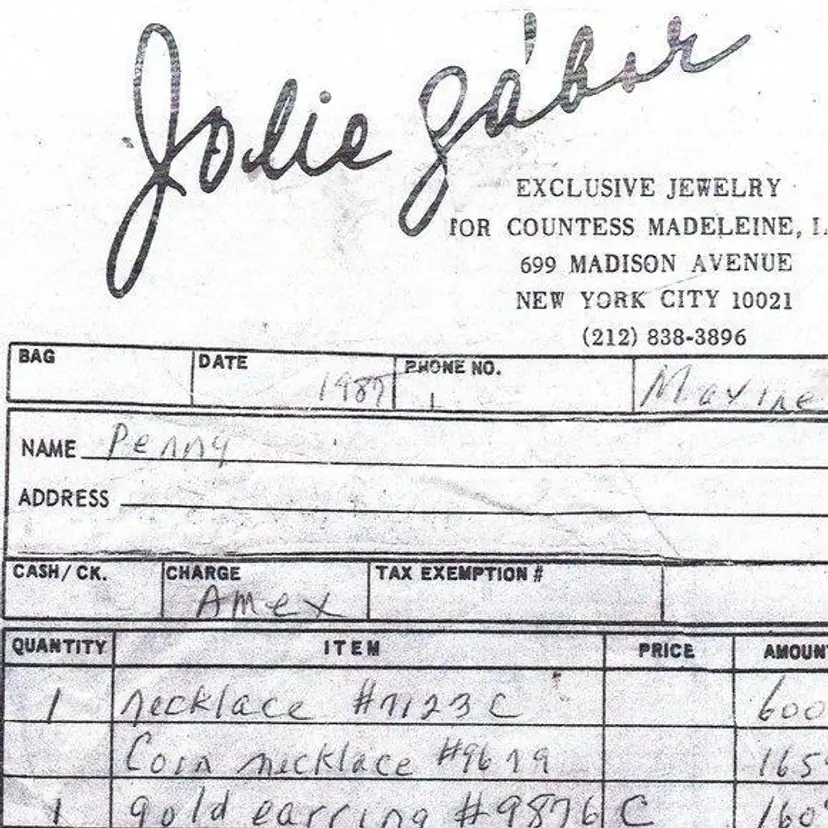 Jolie Gábor
EXCLUSIVE JEWELRY
FOR COUNTESS MADELEINE,
699 MADISON AVENUE
NEW YORK CITY 10021
(212) 838-3896
BAG DATE 1987 PHONE NO. Maxine
NAME Penny
ADDRESS
CASH/CK. CHARGE Amex TAX EXEMPTION #
QUANTITY ITEM PRICE AMOUN
1 necklace #7123 C 600
Coin necklace #9679 165
1 gold earring #9876 C 160